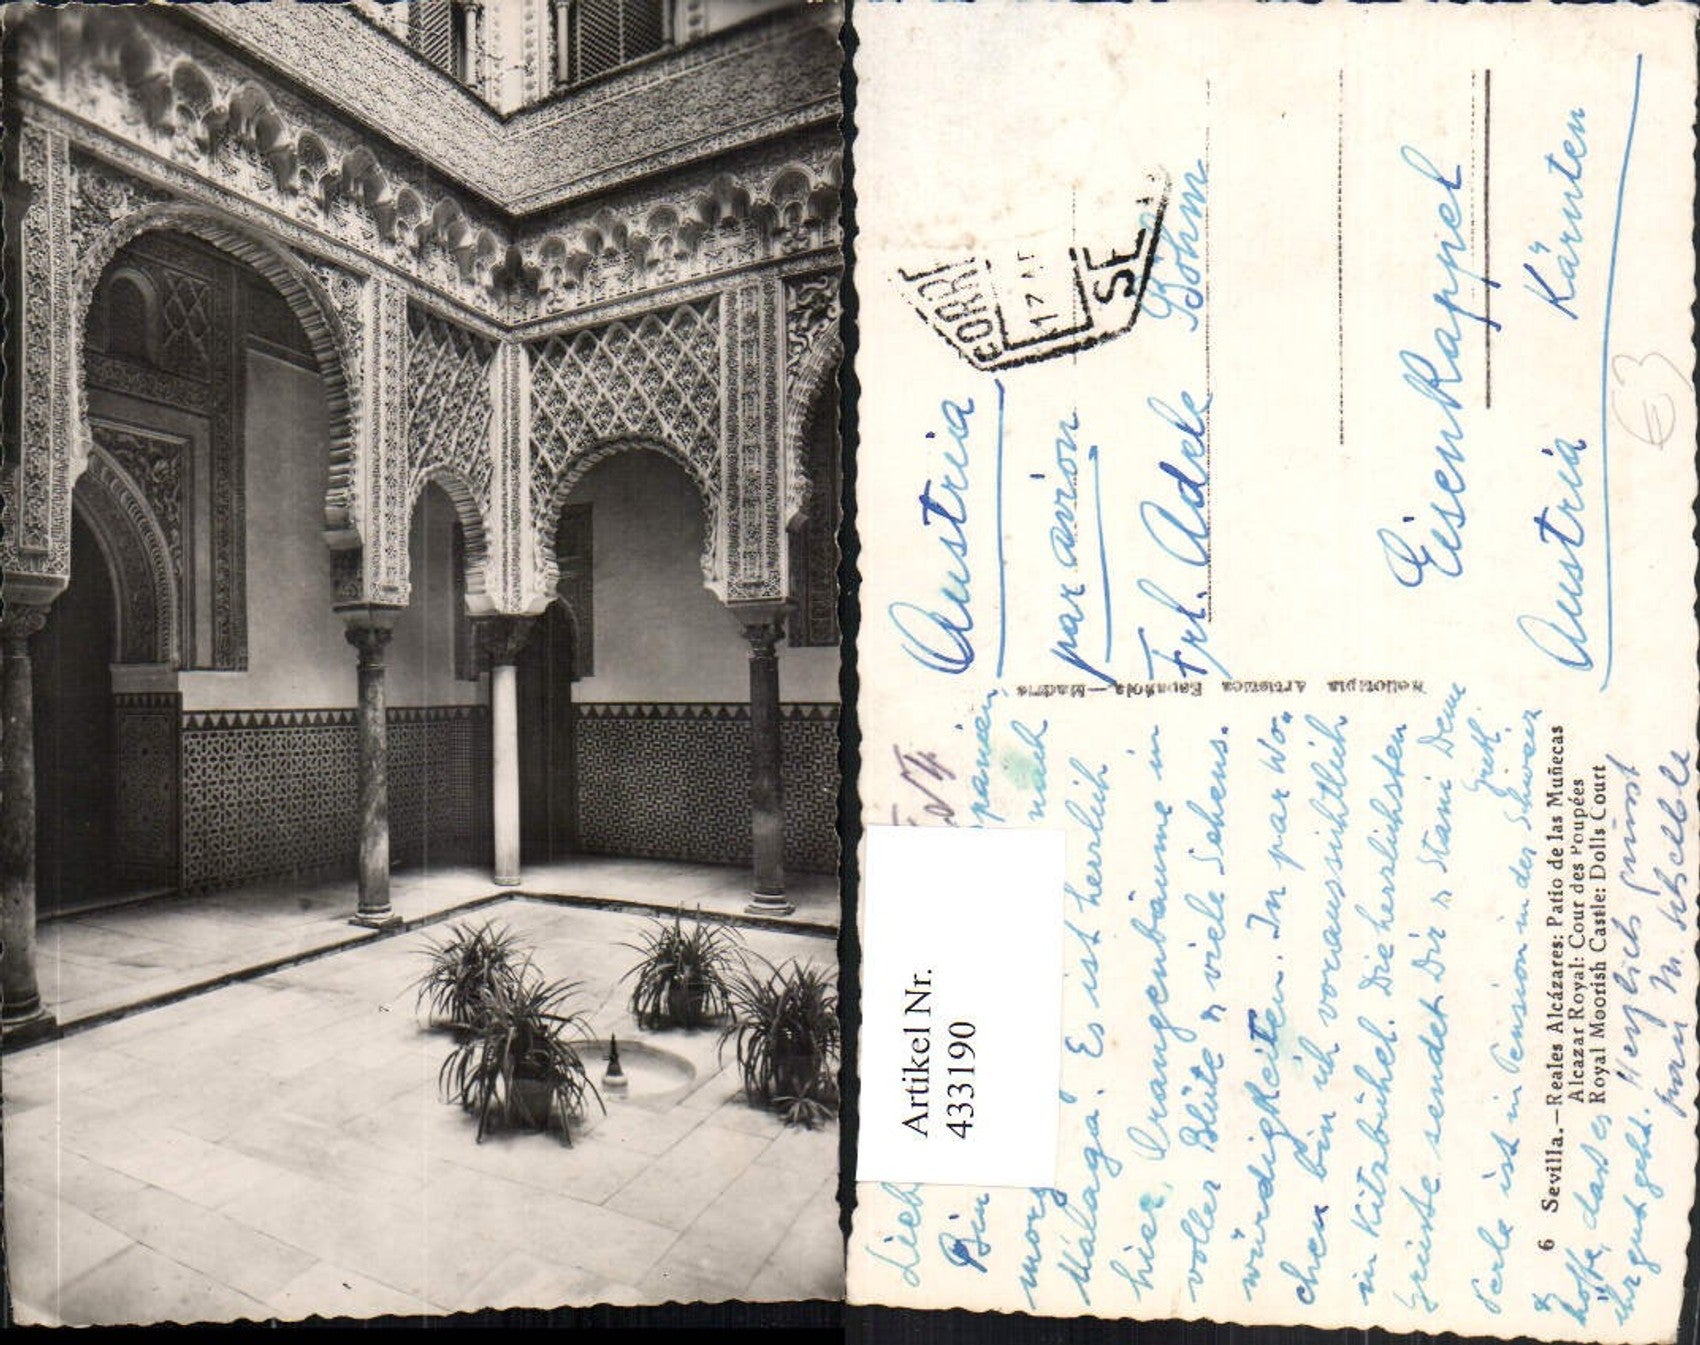 Lieb
Bin
morg nach
Málaga. Es ist herrlich
hier, Orangenbäume in
voller Blüte u viele Sehens-
würdigkeiten. In par Wo-
chen bin ich voraussichtlich
in Kitzbühel. Die herzlichsten
Grüsse sendet Dir u Stani Deine
Gretl.
Perle ist in Pension in der Schweiz
hoffe, dass es
ihr gut geht.
Herzlich grüsst
6 Sevilla.—Reales Alcázares: Patio de las Muñecas
Alcazar Royal: Cour des Poupées
Royal Moorish Castle: Dolls Court
Heliotipia Artística Española.—Madrid
Artikel Nr.
433190
CORRE
17
SE
Austria
par avion
Frl. Adele Böhm
Eisenkappel
Austria Kärnten
€3